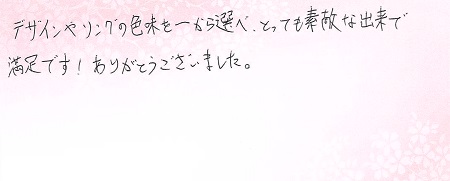 デザインやリングの色味を一から選べ、とっても素敵な出来で
満足です！ありがとうございました。